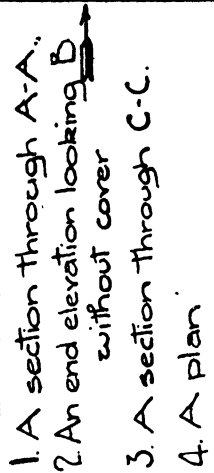 1. A section through A-A.
2. An end elevation looking B
without cover
3. A section through C-C.
4. A plan